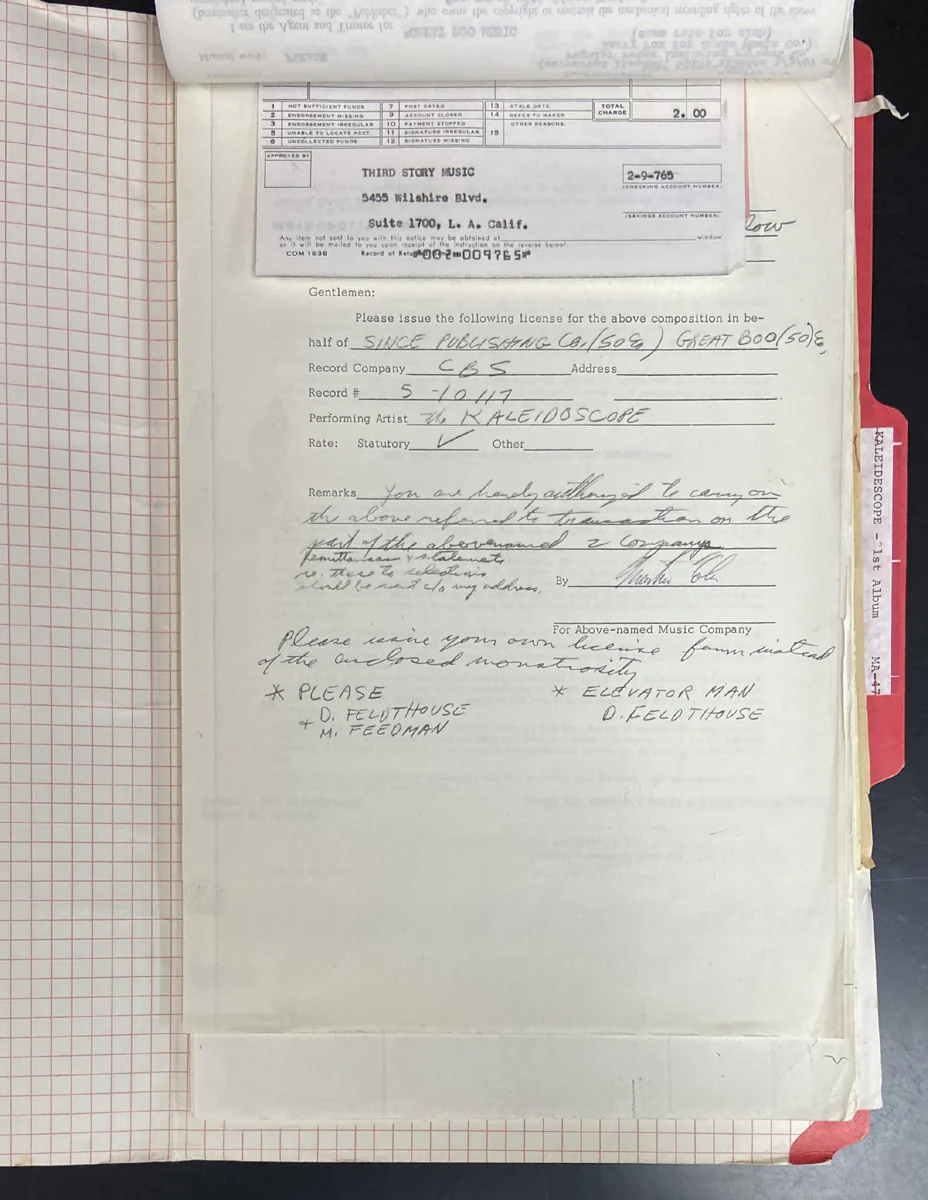 (hereinafter designated as the "Publisher") who owns the copyright or controls the mechanical recording rights of the above
I am the Agent and Trustee for GREAT BOO MUSIC
(same rate for club)
Musical work: PLEASE
1 NOT SUFFICIENT FUNDS 7 POST DATED 13 STALE DATE TOTAL CHARGE 2.00
2 ENDORSEMENT MISSING 9 ACCOUNT CLOSED 14 REFER TO MAKER
3 ENDORSEMENT IRREGULAR 10 PAYMENT STOPPED OTHER REASONS:
5 UNABLE TO LOCATE ACCT. 11 SIGNATURE IRREGULAR 15
6 UNCOLLECTED FUNDS 12 SIGNATURE MISSING
APPROVED BY
THIRD STORY MUSIC 2-9-765
(CHECKING ACCOUNT NUMBER)
5455 Wilshire Blvd.
Suite 1700, L. A. Calif. (SAVINGS ACCOUNT NUMBER)
Any item not sent to you with this notice may be obtained at window
or it will be mailed to you upon receipt of the instruction on the reverse hereof.
COM 1638 Record of Retu 002 009765
low
Gentlemen:
Please issue the following license for the above composition in be-
half of SINCE PUBLISHING Co. (50%) GREAT BOO (50)%
Record Company CBS Address
Record # 5-10117
Performing Artist The KALEIDOSCOPE
Rate: Statutory ✓ Other
Remarks You are hereby authorized to carry on
the above referred to transaction on the
part of the abovenamed 2 Companys
Remittances & statements
re: these to selections
should be sent c/o my address.
By
For Above-named Music Company
Please issue your own license form instead
of the enclosed monstrosity
* PLEASE * ELEVATOR MAN
+ D. FELDTHOUSE D. FELDTHOUSE
M. FEEDMAN
KALEIDESCOPE - 1st Album MA-47